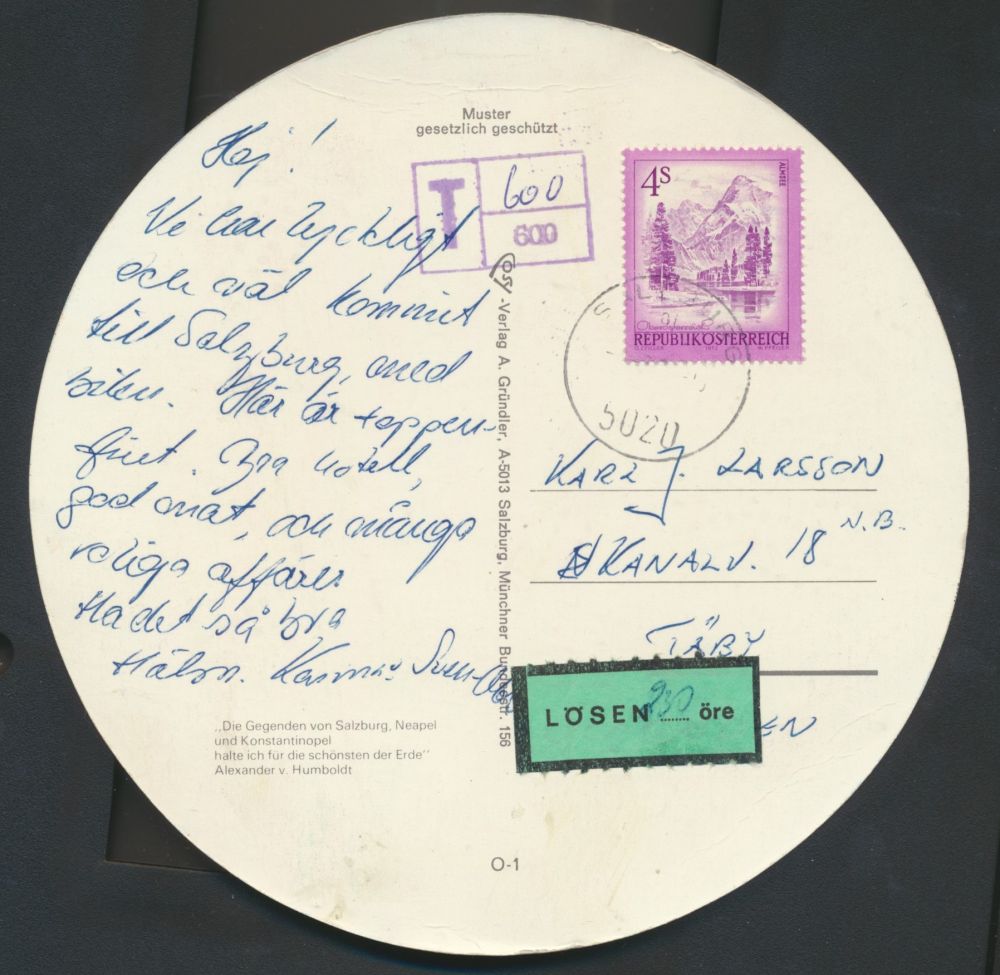 Muster
gesetzlich geschützt
Hej!
Vi har lyckligt
och väl kommit
till Salzburg, med
bilen. Här är toppen-
fint. Bra hotell,
god mat, och många
roliga affärer
Ha det så bra
Hälsn.
T 600
600
4S
ALMSEE
Oberösterreich
REPUBLIK ÖSTERREICH
5020
-Verlag A. Gründler, A-5013 Salzburg, Münchner Bundesstr. 156
KARL J. LARSSON
KANALV. 18 N.B.
TÄBY
LÖSEN 230 öre
EN
„Die Gegenden von Salzburg, Neapel
und Konstantinopel
halte ich für die schönsten der Erde"
Alexander v. Humboldt
O-1